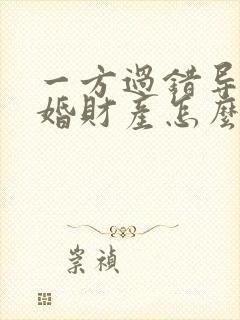 一方過錯导
婚財產怎麼
崇禎